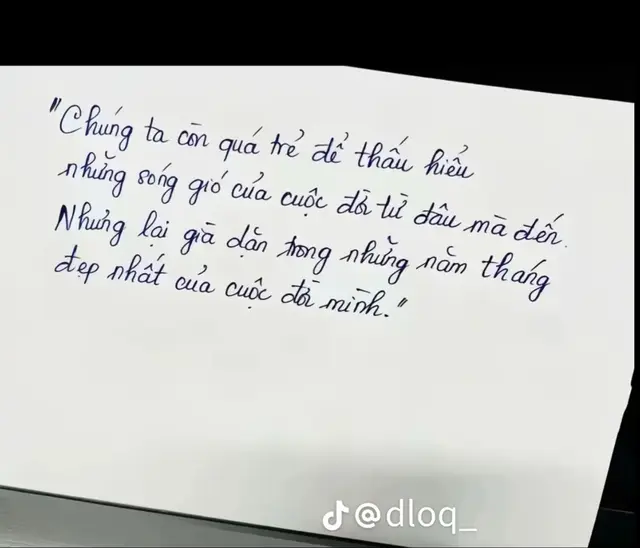 "Chúng ta còn quá trẻ để thấu hiểu
những sóng gió của cuộc đời từ đâu mà đến.
Nhưng lại già dặn trong những năm tháng
đẹp nhất của cuộc đời mình."
@dloq_